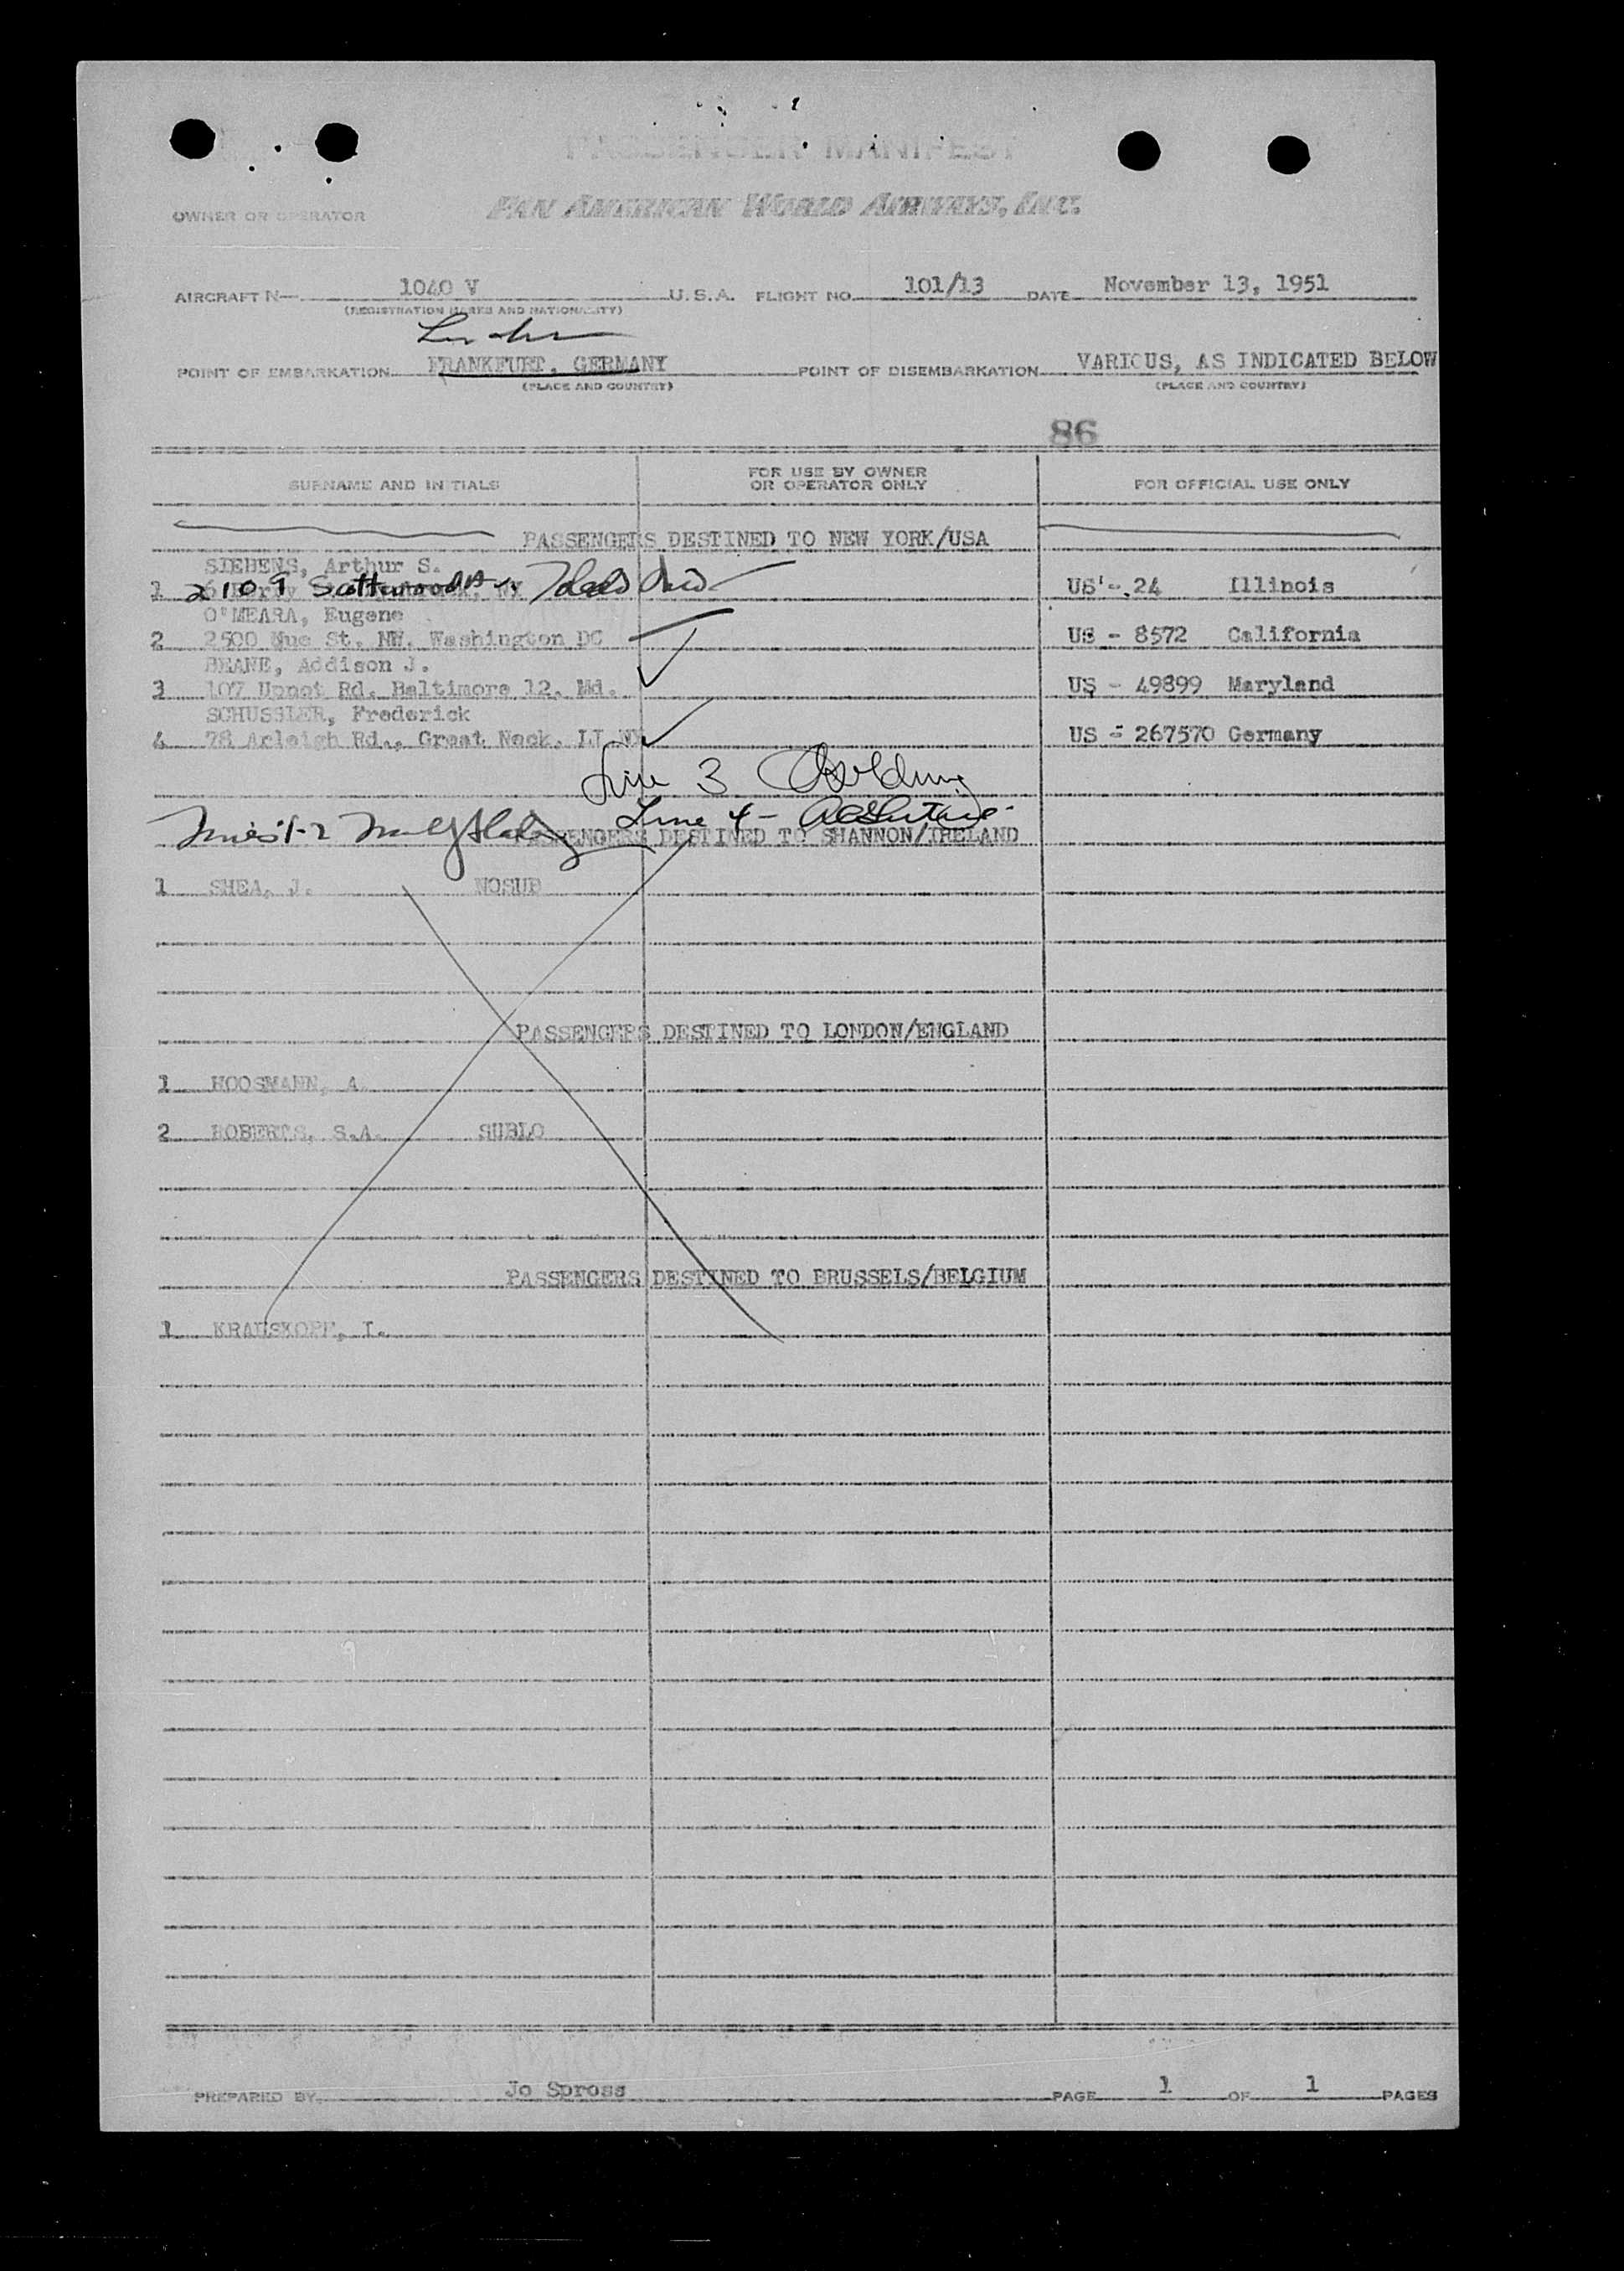 PASSENGER MANIFEST
OWNER OR OPERATOR PAN AMERICAN WORLD AIRWAYS, INC.
AIRCRAFT N— 1040 V U.S.A. FLIGHT NO. 101/13 DATE November 13, 1951
(REGISTRATION MARKS AND NATIONALITY)
London
POINT OF EMBARKATION FRANKFURT, GERMANY POINT OF DISEMBARKATION VARIOUS, AS INDICATED BELOW
(PLACE AND COUNTRY) (PLACE AND COUNTRY)
86
SURNAME AND INITIALS FOR USE BY OWNER OR OPERATOR ONLY FOR OFFICIAL USE ONLY
PASSENGERS DESTINED TO NEW YORK/USA
SIEBENS, Arthur S.
1 2109 Toledo Ohio US - 24 Illinois
O'MEARA, Eugene
2 2500 Que St. NW. Washington DC US - 8572 California
BEANE, Addison J.
3 107 Upnot Rd. Baltimore 12, Md. US - 49899 Maryland
SCHUSSLER, Frederick
4 78 Arleigh Rd., Great Neck, LI NY US - 267570 Germany
Line 3
Line 4 -
PASSENGERS DESTINED TO SHANNON/IRELAND
1 SHEA, J. NOSUB
PASSENGERS DESTINED TO LONDON/ENGLAND
1 HOOSMANN, A.
2 ROBERTS, S.A. SUBLO
PASSENGERS DESTINED TO BRUSSELS/BELGIUM
1 KRAUSKOPF, I.
PREPARED BY Jo Spross PAGE 1 OF 1 PAGES